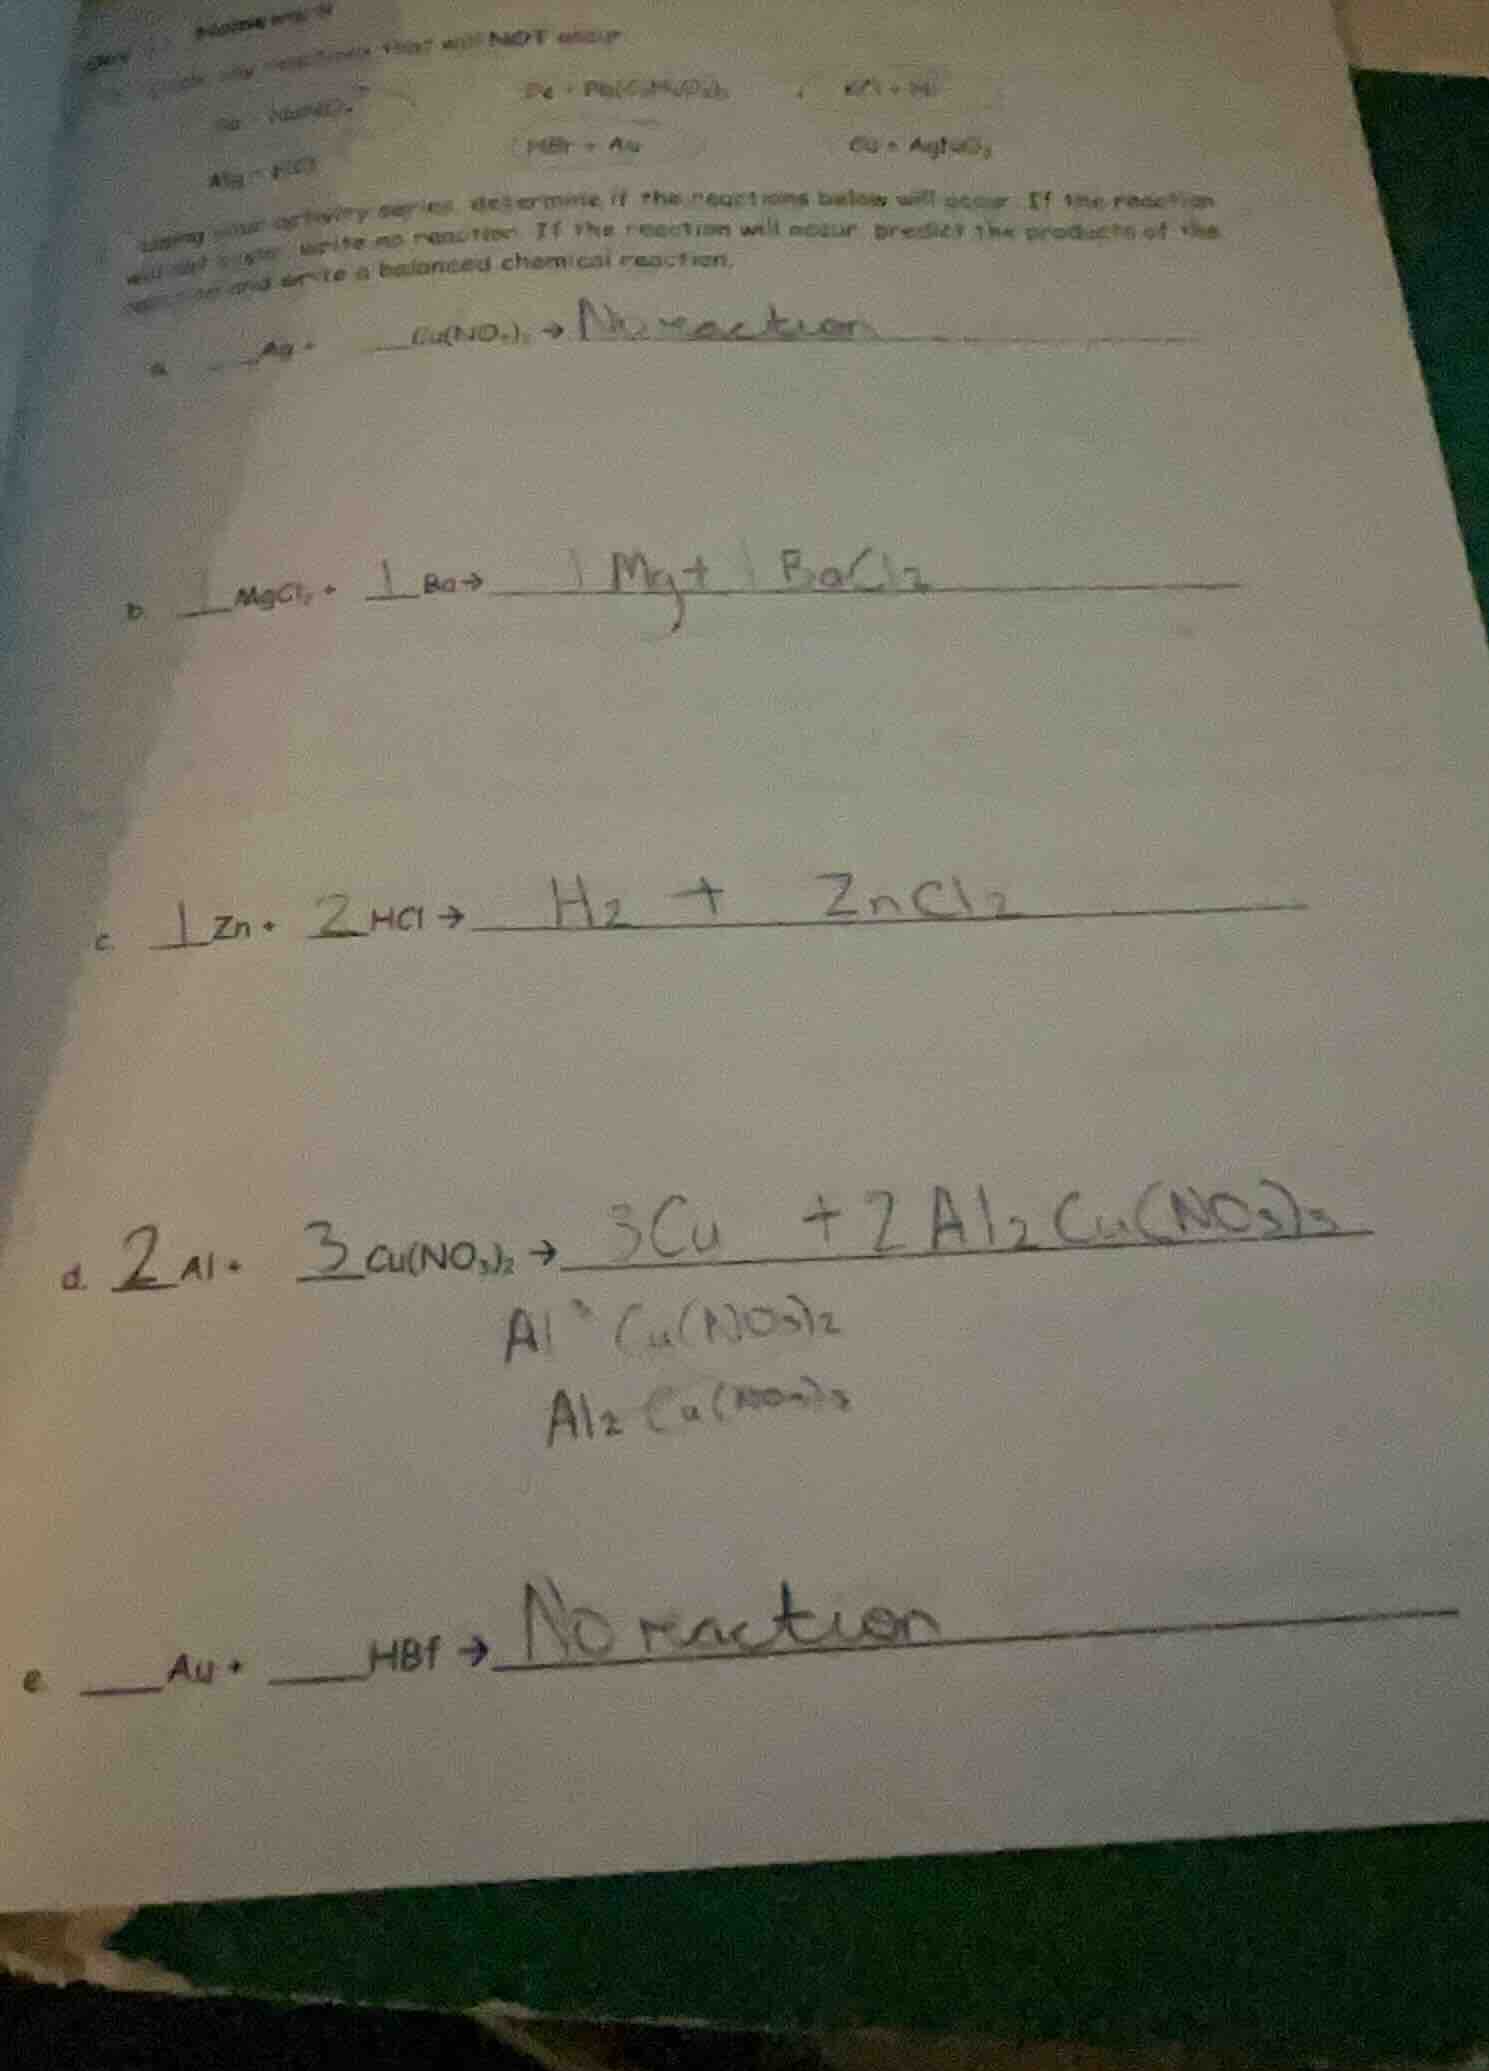 that will NOT occur
HBr + Au
Cu + AgNO₃
Using your activity series, determine if the reactions below will occur. If the reaction
will not occur, write no reaction. If the reaction will occur, predict the products of the
reaction and write a balanced chemical reaction.
a. ___Ag + ___Cu(NO₃)₂ → No reaction
b. 1 MgCl₂ + 1 Ba → 1 Mg + 1 BaCl₂
c. 1 Zn + 2 HCl → H₂ + ZnCl₂
d. 2 Al + 3 Cu(NO₃)₂ → 3Cu + 2 Al₂Cu(NO₃)₃
Al³ Cu(NO₃)₂
Al₂ Cu(NO₃)₃
e. ___Au + ___HBr → No reaction